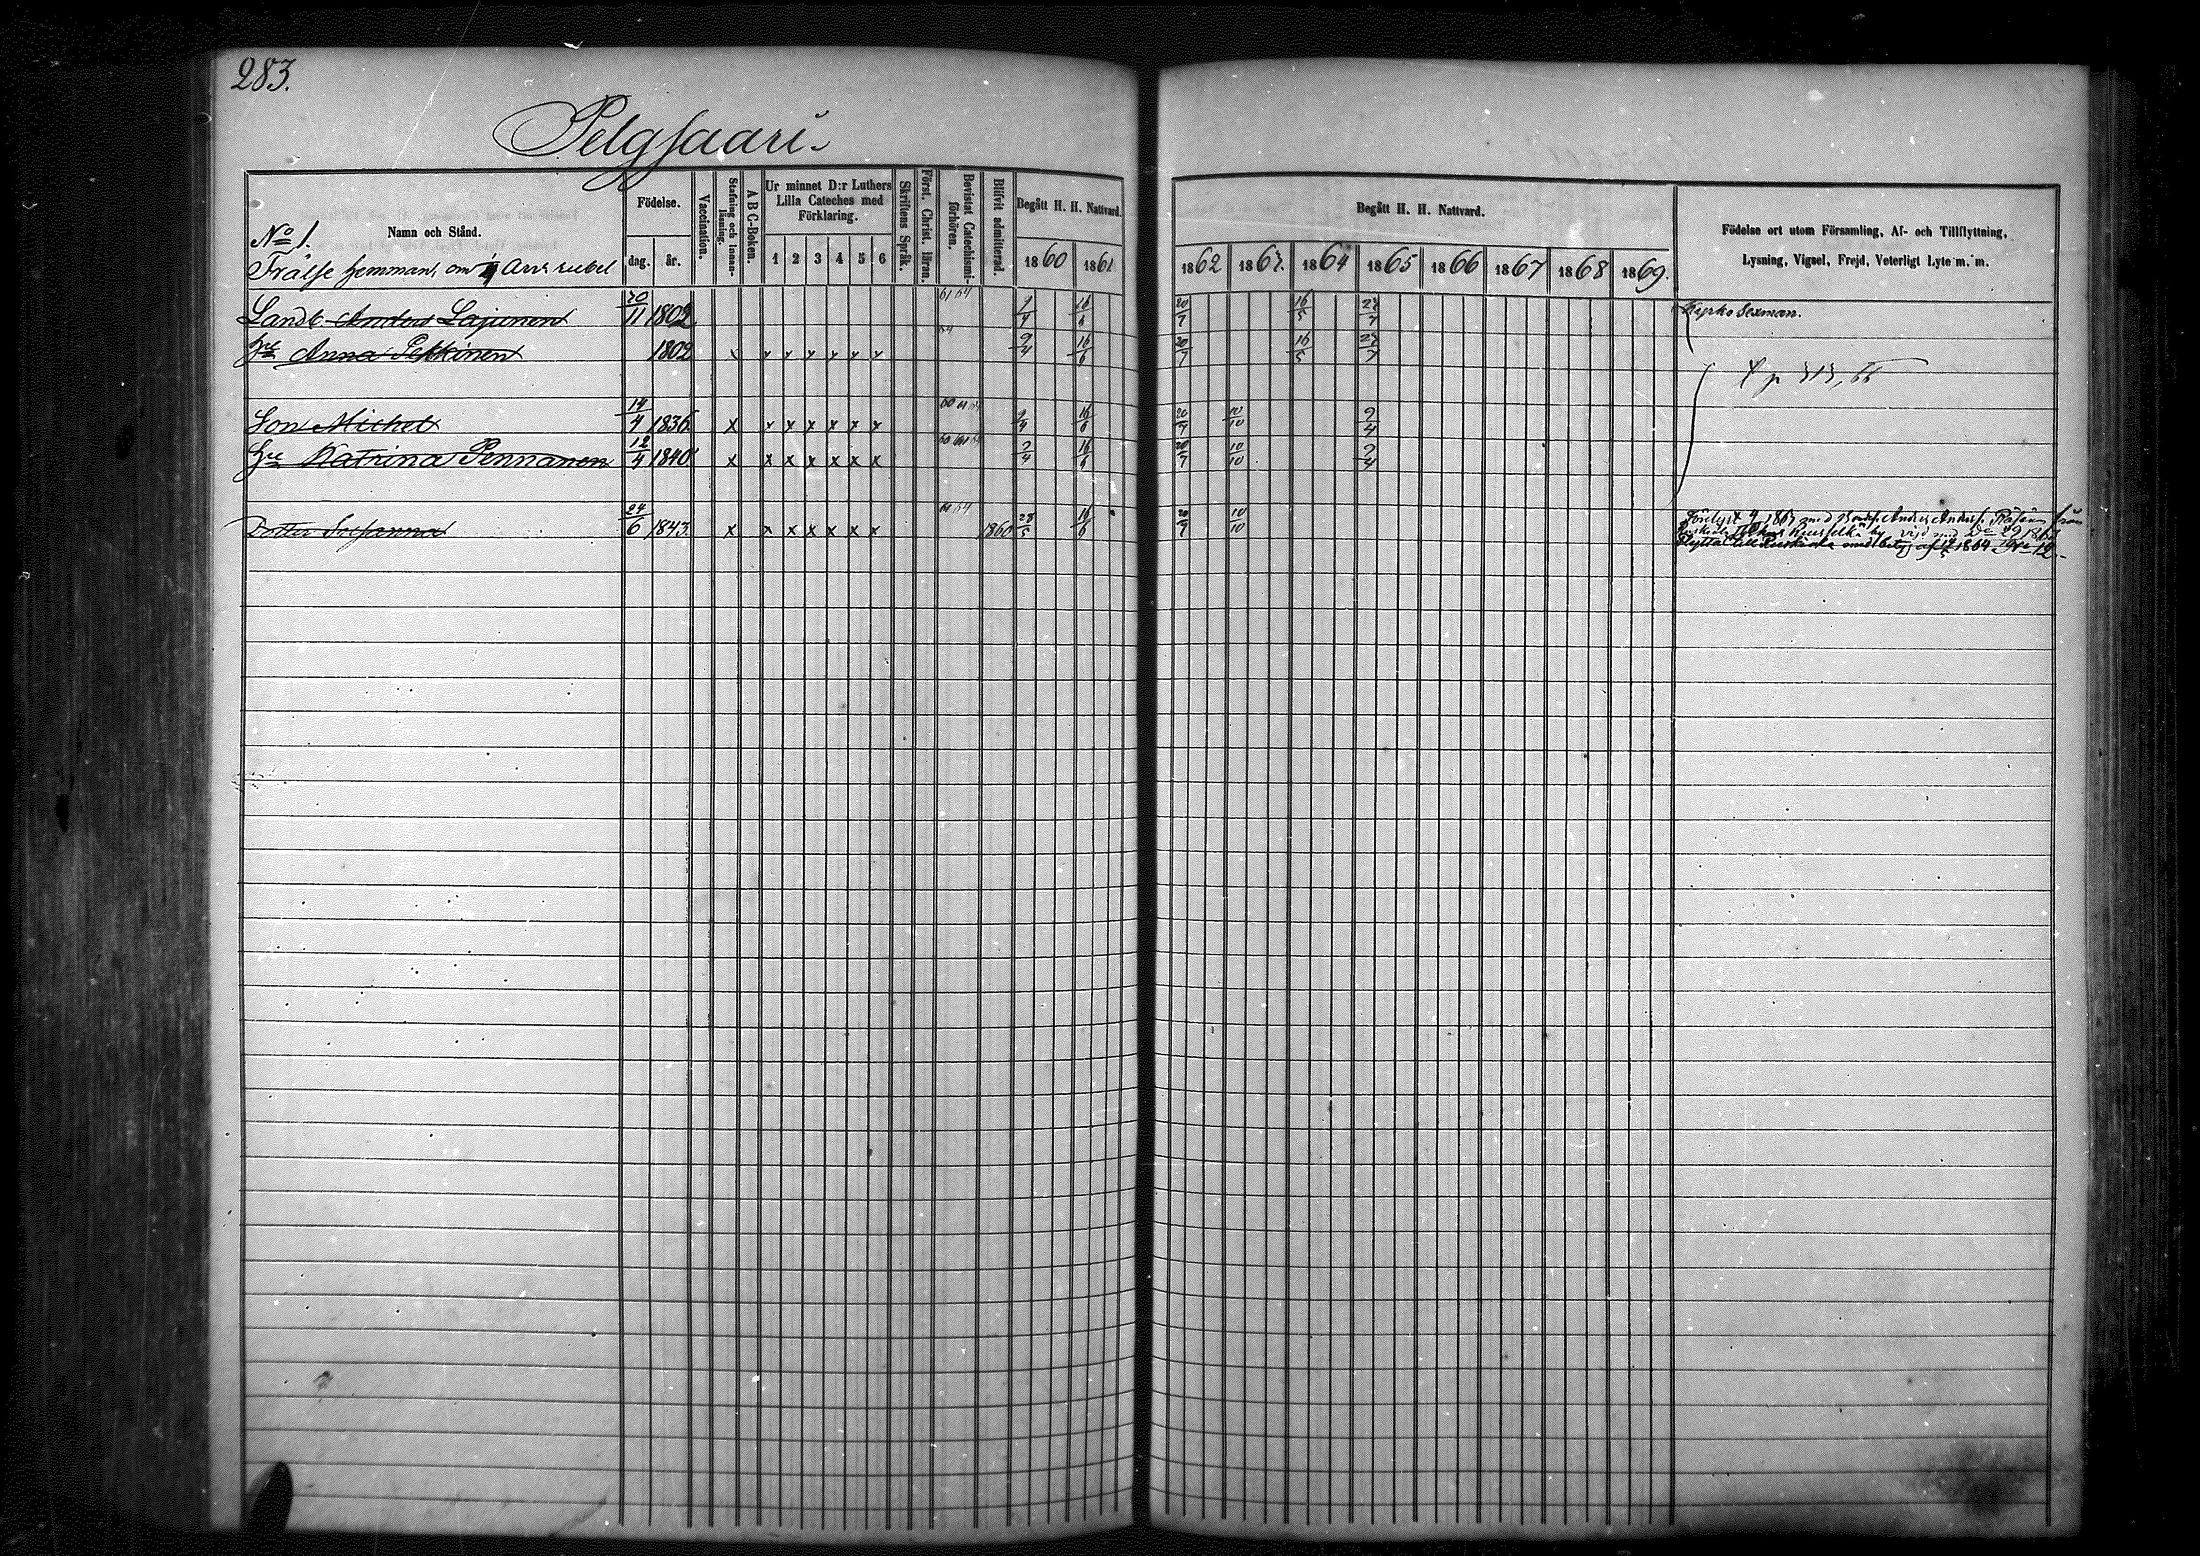 283.
Pelgsaari.
Namn och Stånd.
Födelse.
dag.
år.
Vaccination.
Stafning och Innanläsning.
A B C-Boken.
Ur minnet D:r Luthers
Lilla Cateches med
Förklaring.
1 2 3 4 5 6
Skriftens Språk.
Först. Christ. läran.
Bevistat Catechismi-
förhören.
Blifvit admitterad.
Begått H. H. Nattvard.
1860 1861
Begått H. H. Nattvard.
1862 1863. 1864 1865 1866 1867 1868 1869.
Födelse ort utom Församling, Af- och Tillflyttning,
Lysning, Vigsel, Frejd, Veterligt Lyte m. m.
No 1.
Frälse hemman, om Arvs rubel
Landb. Anders Lajunen 20/11 1802 61 64 9/4 16/6 20/7 16/5 27/7 Kyrko Sexman.
Hu Anna Pekkinen 1802 x x x x x x x 64 9/4 16/6 20/7 16/5 27/7
Son Michel 14/4 1836 x x x x x x x 60 61 64 9/4 16/6 20/7 10/10 9/4
Hu Katrina Pennanen 12/4 1840 x x x x x x x 60 61 64 9/4 16/6 20/7 10/10 9/4
Dotter Susanna 24/6 1843 x x x x x x x 61 64 1860 28/5 16/6 20/7 10/10
1863 med Anders Anders. från
1864